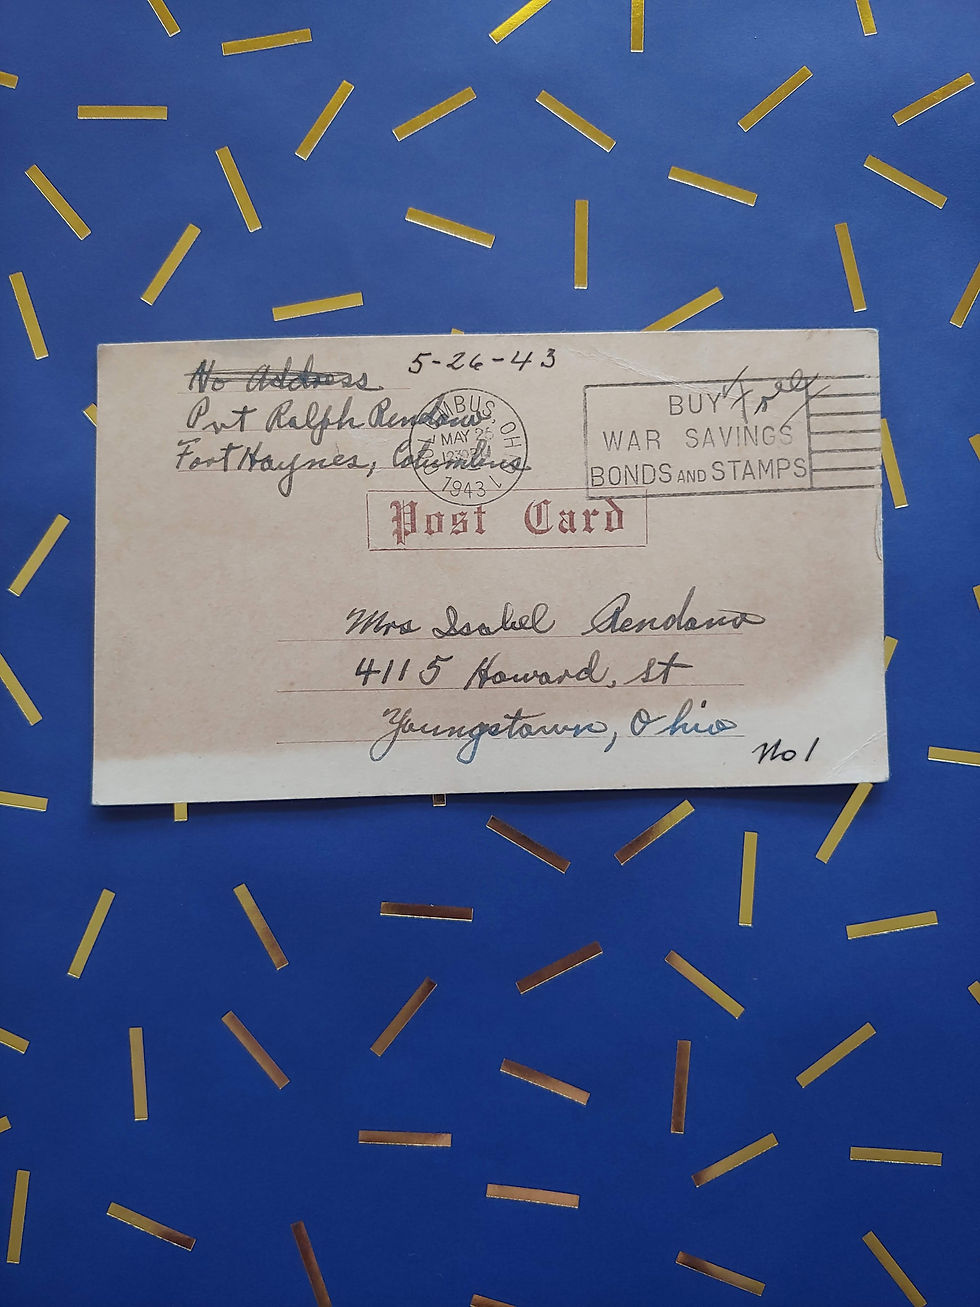 No Address
5-26-43
Pvt Ralph Rendano
Fort Haynes, Columbus
MBUS, OH
MAY 26
1943
BUY Free
WAR SAVINGS
BONDS AND STAMPS
Post Card
Mrs Isabel Rendano
4115 Howard, St
Youngstown, Ohio
No 1